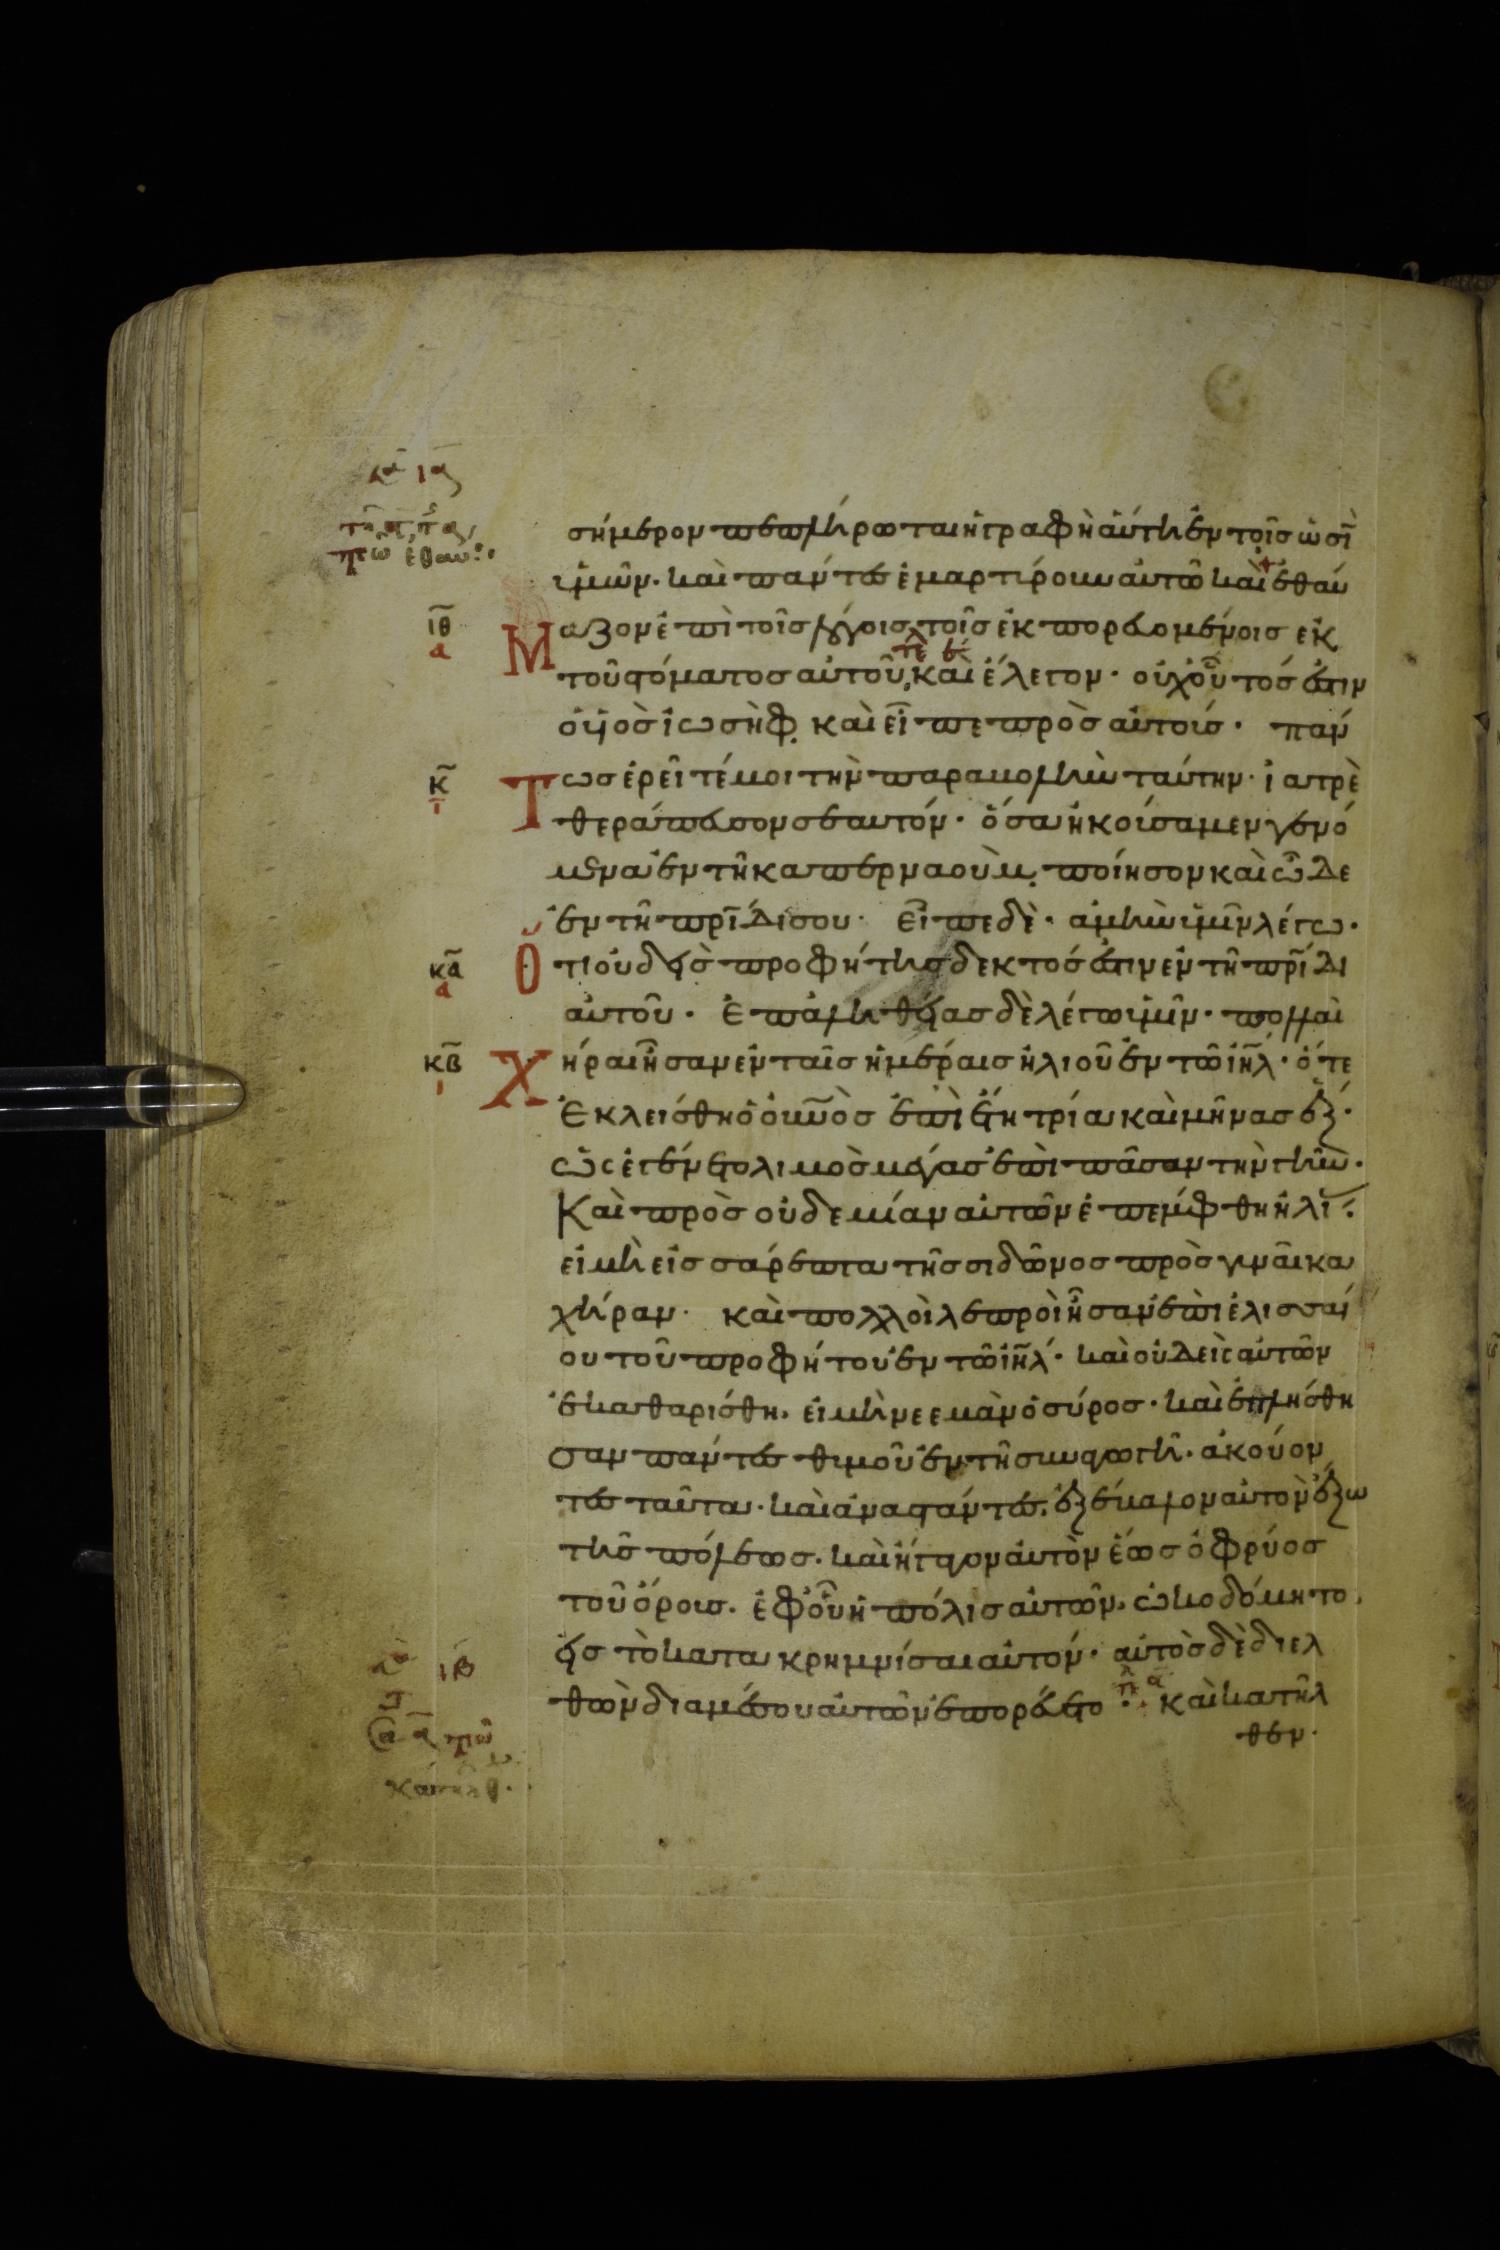 σήμερον πεπλήρωται ἡ γραφὴ αὕτη ἐν τοῖς ὠσῒ
ὑμῶν· καὶ πάντες ἐμαρτύρουν αὐτῶ καὶ ἐθαύ
ιθ
α
Μαζον ἐπὶ τοῖς λόγοις τοῖς ἐκπορευομένοις ἐκ
τοῦ στόματος αὐτοῦ, καὶ ἔλεγον· οὐχ οὗτός ἐστιν
ὁ υἱὸς ἰωσὴφ. καὶ εἶπε πρὸς αὐτούς· πάν
κ
ι
Τως ἐρεῖτέ μοι τὴν παραβολὴν ταύτην· ἰατρὲ
θεράπευσον σεαυτόν· ὅσα ἠκούσαμεν γενό
μενα ἐν τῆ καπερναοὺμ, ποίησον καὶ ὧδε
ἐν τῆ πρῑδι σου· εἶπε δὲ· ἀμὴν ὑμῖν λέγω·
κα
α
Ὅτι οὐδεὶς προφήτης δεκτός ἐστιν ἐν τῆ πρῑδι
αὐτοῦ· Ἐπ' ἀληθείας δὲ λέγω ὑμῖν· πολλαὶ
κβ
ι
Χήραι ἦσαν ἐν ταῖς ἡμέραις ἡλιοῦ ἐν τῶ ἰηλ· ὅτε
Ἐκλείσθη ὁ οὐνὸς ἐπὶ ἔτη τρία καὶ μῆνας ἕξ·
ὡς ἐγένετο λιμὸς μέγας ἐπὶ πᾶσαν τὴν γῆν·
Καὶ πρὸς οὐδεμίαν αὐτῶν ἐπέμφθη ἠλί
εἰ μὴ εἰς σάρεπτα τῆς σιδῶνος πρὸς γυναῖκα
χήραν· καὶ πολλοὶ λεπροὶ ἦσαν ἐπὶ ἐλισσαί
ου τοῦ προφήτου ἐν τῶ ἰηλ· καὶ οὐδεὶς αὐτῶν
ἐκαθαρίσθη. εἰ μὴ νεεμὰν ὁ σύρος· καὶ ἐπλήσθη
σαν πάντες θυμοῦ ἐν τῆ συναγωγῆ· ἀκούον
τες ταῦτα· καὶ ἀναστάντες, ἐξέβαλον αὐτὸν ἔξω
τῆς πόλεως. καὶ ἤγαγον αὐτὸν ἕως ὀφρύος
τοῦ ὄρους. ἐφ' οὗ ἡ πόλις αὐτῶν, ὠκοδόμητο.
εἰς τὸ κατακρημνίσαι αὐτόν· αὐτὸς δὲ διελ
ιβ
θὼν δια μέσου αὐτῶν ἐπορεύετο· καὶ κατῆλ
θεν·